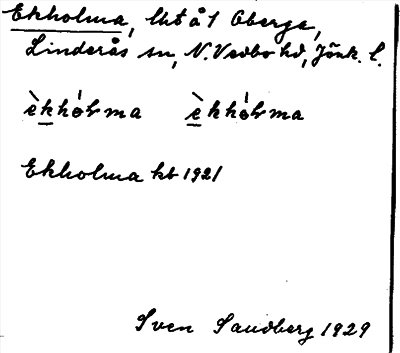 Ekholma, lht å 1 Oberga,
Linderås sn, N. Vedbo hd, Jönk. l.
èkhólma èkhólma
Ekholma kb 1921
Sven Sandberg 1929